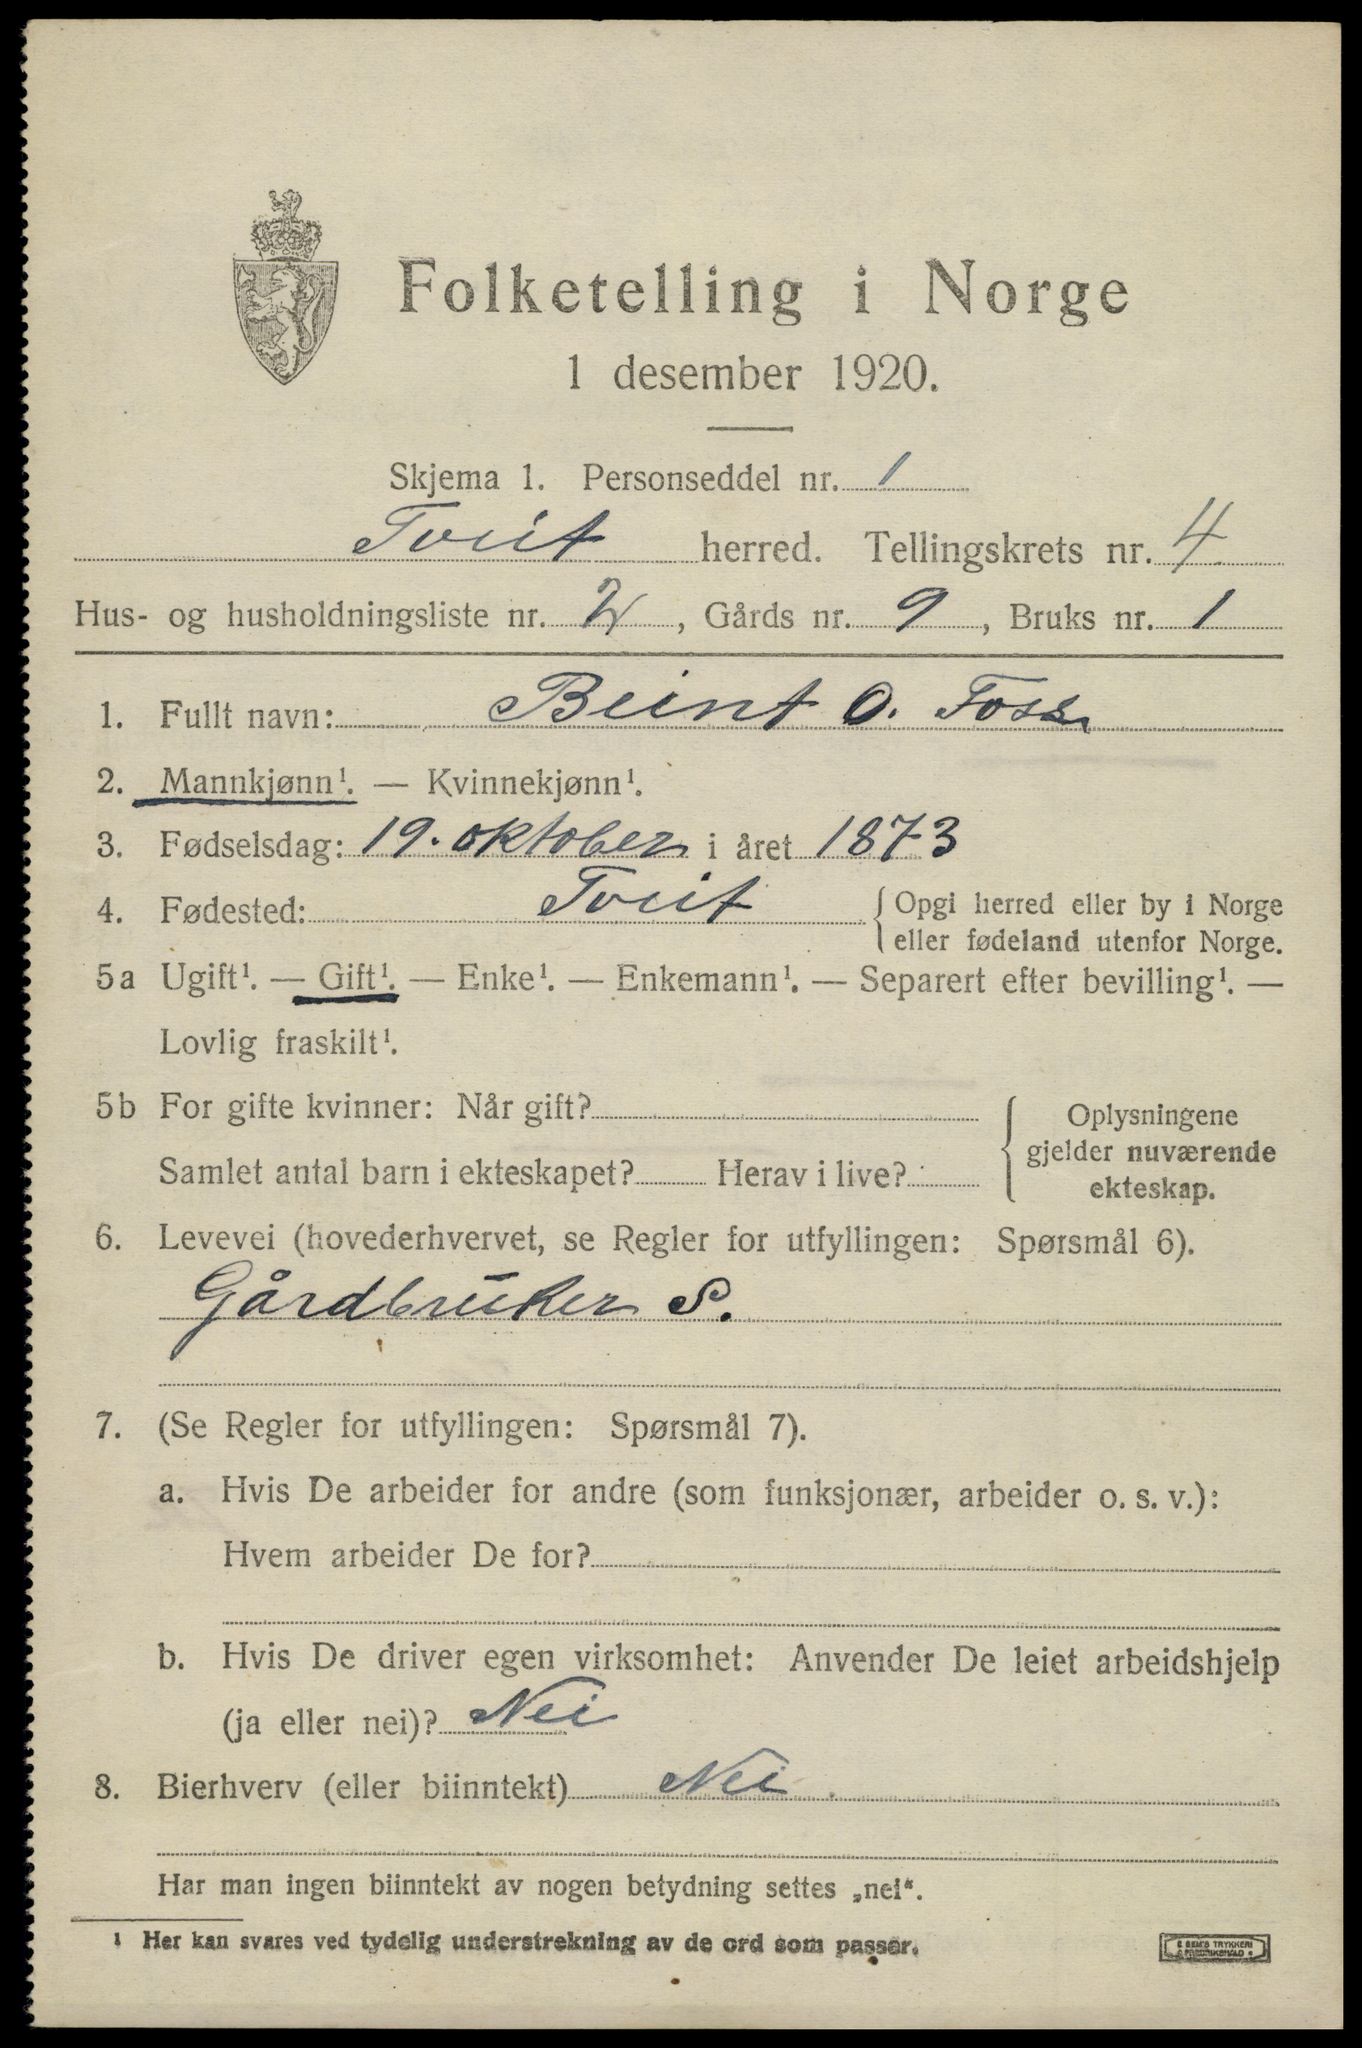 Folketelling i Norge
1 desember 1920.
Skjema 1. Personseddel nr. 1
Tveit herred. Tellingskrets nr. 4
Hus- og husholdningsliste nr. 2, Gårds nr. 9, Bruks nr. 1
1. Fullt navn: Beint O. Foss
2. Mannkjønn¹. — Kvinnekjønn¹.
3. Fødselsdag: 19. oktober i året 1873
4. Fødested: Tveit {Opgi herred eller by i Norge
eller fødeland utenfor Norge.
5a Ugift¹. — Gift¹. — Enke¹. — Enkemann¹. — Separert efter bevilling¹. —
Lovlig fraskilt¹.
5b For gifte kvinner: Når gift?
Samlet antal barn i ekteskapet? Herav i live?
Oplysningene
gjelder nuværende
ekteskap.
6. Levevei (hovederhvervet, se Regler for utfyllingen: Spørsmål 6).
Gårdbruker S.
7. (Se Regler for utfyllingen: Spørsmål 7).
a. Hvis De arbeider for andre (som funksjonær, arbeider o. s. v.):
Hvem arbeider De for?
b. Hvis De driver egen virksomhet: Anvender De leiet arbeidshjelp
(ja eller nei)? Nei
8. Bierhverv (eller biinntekt) Nei.
Har man ingen biinntekt av nogen betydning settes „nei“.
¹ Her kan svares ved tydelig understrekning av de ord som passer.
E SEM'S TRYKKERI
FREDRIKSHALD